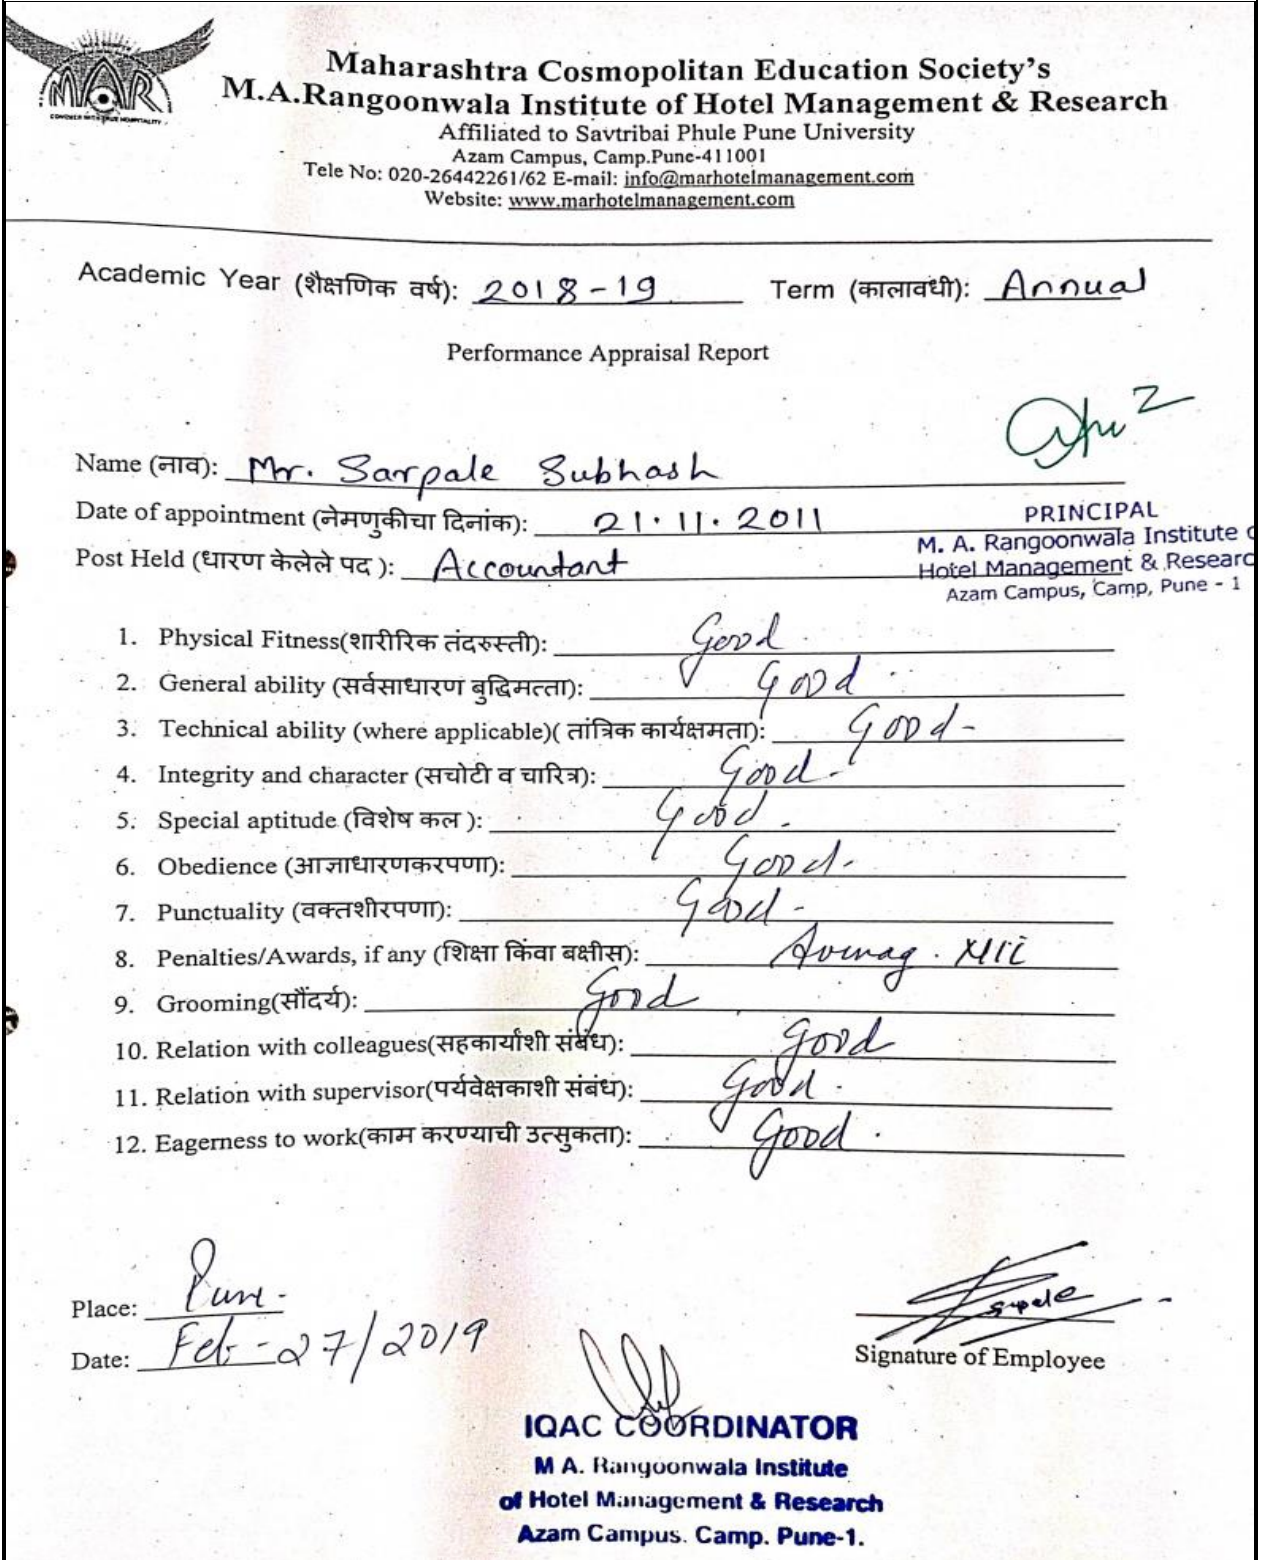 MAR
Maharashtra Cosmopolitan Education Society's
M.A.Rangoonwala Institute of Hotel Management & Research
Affiliated to Savtribai Phule Pune University
Azam Campus, Camp.Pune-411001
Tele No: 020-26442261/62 E-mail: info@marhotelmanagement.com
Website: www.marhotelmanagement.com
Academic Year (शैक्षणिक वर्ष): 2018-19 Term (कालावधी): Annual
Performance Appraisal Report
Name (नाव): Mr. Sarpale Subhash
Date of appointment (नेमणुकीचा दिनांक): 21.11.2011
PRINCIPAL
M. A. Rangoonwala Institute
Hotel Management & Researc
Azam Campus, Camp, Pune - 1
Post Held (धारण केलेले पद ): Accountant
1. Physical Fitness(शारीरिक तंदरुस्ती): Good
2. General ability (सर्वसाधारण बुद्धिमत्ता): Good
3. Technical ability (where applicable)( तांत्रिक कार्यक्षमता): Good-
4. Integrity and character (सचोटी व चारित्र): Good
5. Special aptitude (विशेष कल ): Good.
6. Obedience (आज्ञाधारणकरपणा): Good.
7. Punctuality (वक्तशीरपणा): Good-
8. Penalties/Awards, if any (शिक्षा किंवा बक्षीस):
9. Grooming(सौंदर्य): Good
10. Relation with colleagues(सहकार्यांशी संबंध): Good
11. Relation with supervisor(पर्यवेक्षकाशी संबंध): Good.
12. Eagerness to work(काम करण्याची उत्सुकता): Good.
Place: Pune-
Date: Feb-27/2019
Signature of Employee
IQAC COORDINATOR
M A. Rangoonwala Institute
of Hotel Management & Research
Azam Campus. Camp. Pune-1.